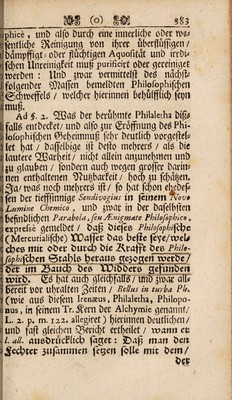 (o) 383
phicè, und also durch eine innerliche oder we-
sentliche Reinigung von ihrer überflüssigen/
dämpffigt- oder flüchtigen Aquosität und irrdi-
schen Unreinigkeit muß purificirt oder gereiniget
werden: Und zwar vermittelst des nächst-
folgender Massen bemeldten Philosophischen
Schweffels / welcher hierinnen behülfflich seyn
muß.
Ad §. 2. Was der berühmte Philaletha diß-
falls entdecket / und also zur Eröffnung des Phi-
losophischen Geheimnuß sehr deutlich vorgestel-
let hat / dasselbige ist desto mehrers / als die
lautere Warheit / nicht allein anzunehmen und
zu glauben / sondern auch wegen grosser darin-
nen enthaltenen Nutzbarkeit / hoch zu schätzen.
Ja / was noch mehrers ist / so hat schon ehedes-
sen der tieffsinnige Sendivogius in seinem Novo
Lumine Chemico, und zwar in der daselbsten
befindlichen Parabola, seu Ænigmate Philosophico,
expresè gemeldet / daß dieses Philosophische
(Mercurialische) Wasser das beste seye / wel-
ches mit oder durch die Krafft des Philo-
sophischen Stahls heraus gezogen werde /
der im Bauch des Widders gefunden
wird. Es hat auch gleichfalls / und zwar all-
bereit vor uhralten Zeiten / Bellus in turba Ph.
(wie aus diesem Irenæus, Philaletha, Philopo-
nus, in seinem Tr. Kern der Alchymie genannt /
L. 2. p. m. 122. allegiret) hierinnen deutlichen /
und fast gleichen Bericht ertheilet / wann er
l. all. ausdrücklich saget: Daß man den
Fechter zusammen setzen solle mit dem /
der